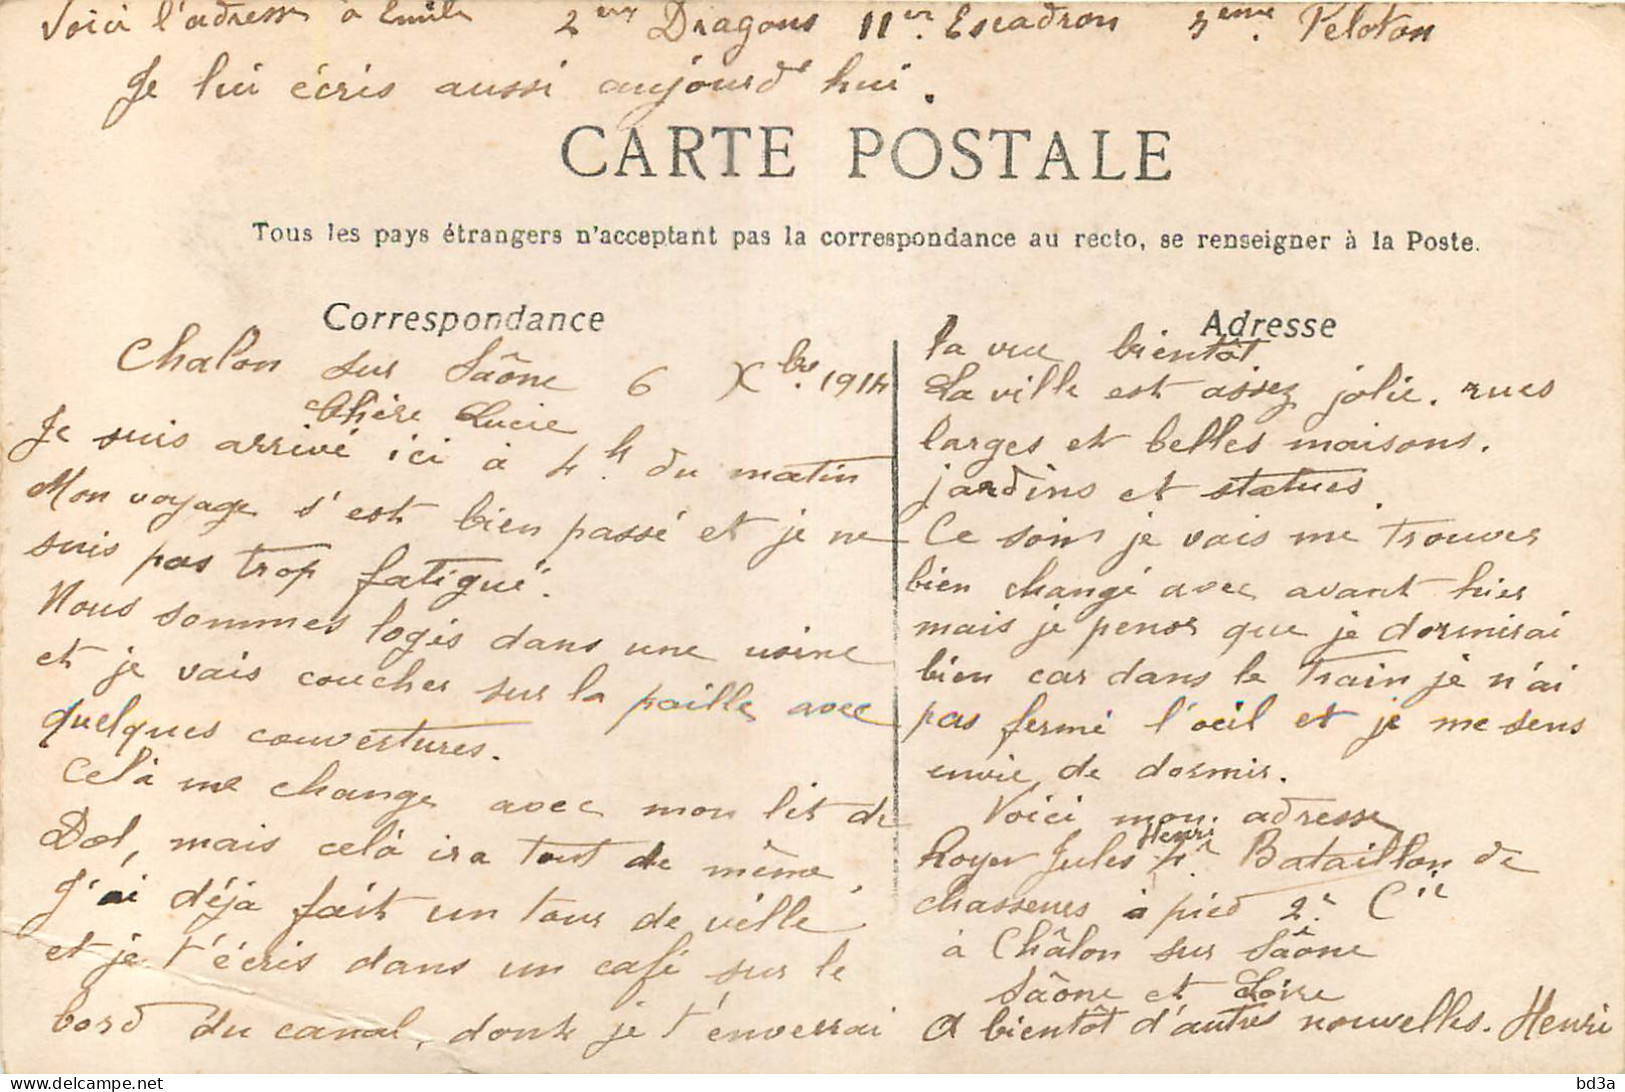 Voici l'adresse à Emile 2eme Dragons 11er Escadron 3eme Peloton
Je lui écris aussi aujourd'hui.
CARTE POSTALE
Tous les pays étrangers n'acceptant pas la correspondance au recto, se renseigner à la Poste.
Correspondance
Chalon sur Saône 6 Xbre 1914
Chère Lucie
Je suis arrivé ici à 4h. du matin
Mon voyage s'est bien passé et je ne
suis pas trop fatigué.
Nous sommes logés dans une usine
et je vais coucher sur la paille avec
quelques couvertures.
Celà me change avec mon lit de
Dol, mais celà ira tout de même.
J'ai déjà fait un tour de ville
et je t'écris dans un café sur le
bord du canal, dont je t'enverrai
Adresse
la vue bientôt
La ville est assez jolie. rues
larges et belles maisons.
jardins et statues.
Ce soir je vais me trouver
bien changé avec avant hier
mais je pense que je dormirai
bien car dans le train je n'ai
pas fermé l'oeil et je me sens
envie de dormir.
Voici mon adresse
Henri
Royer Jules 4e Bataillon de
chasseurs à pied 2e Cie
à Châlon sur Saône
Saône et Loire
A bientôt d'autres nouvelles. Henri
bd3a